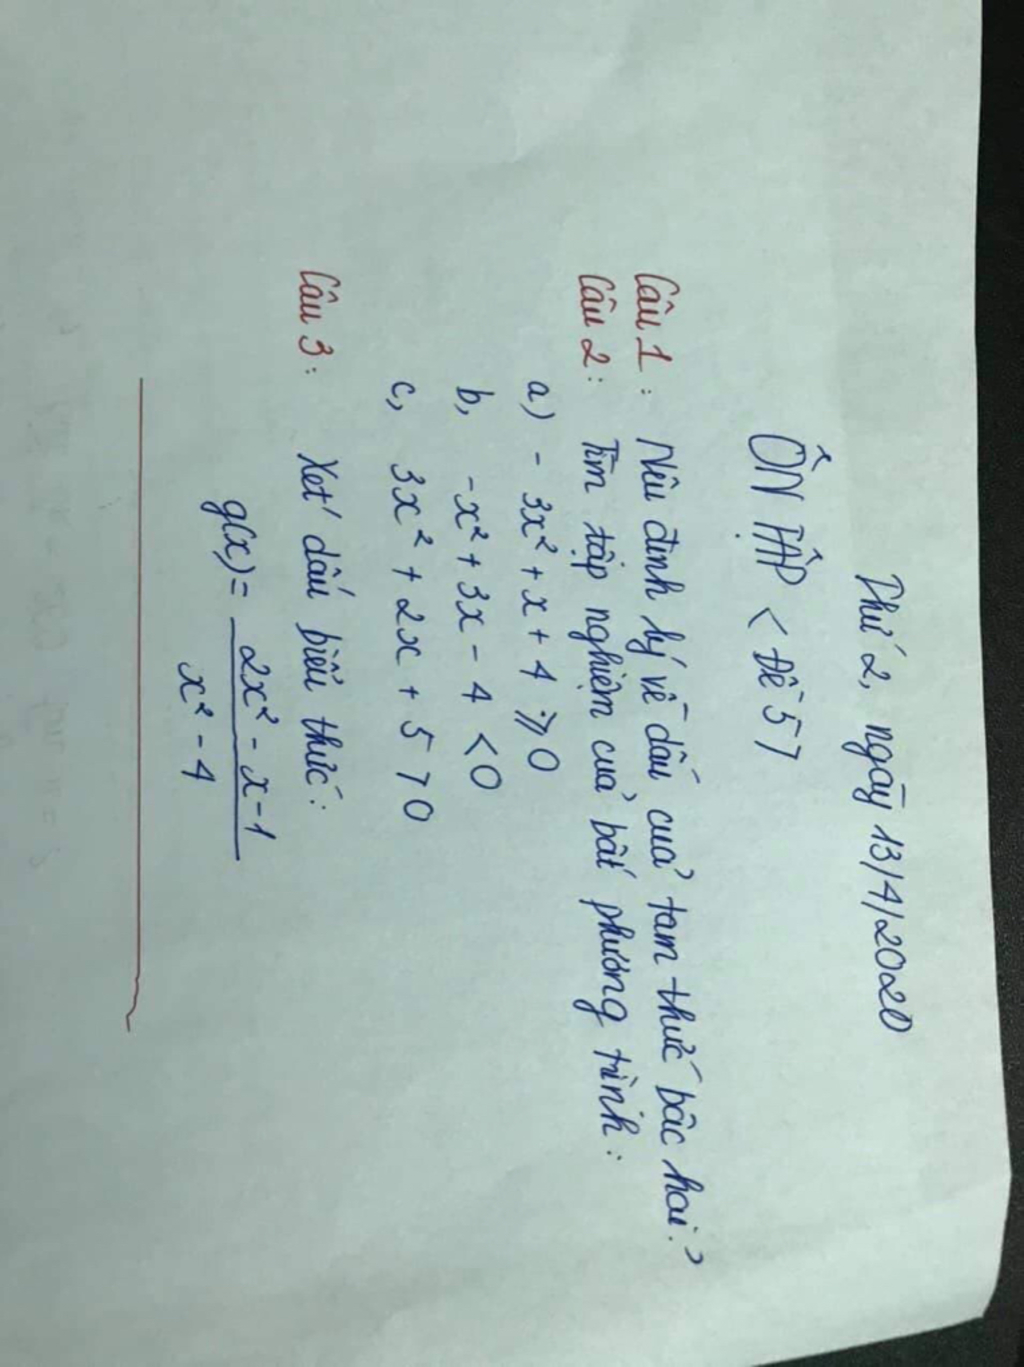 Thứ 2, ngày 13/4/2020
ÔN TẬP < Đề 5 >
Câu 1 : Nêu định lý về dấu của tam thức bậc hai ?
Câu 2 : Tìm tập nghiệm của bất phương trình :
a) - 3x² + x + 4 ≥ 0
b, -x² + 3x - 4 < 0
c, 3x² + 2x + 5 > 0
Câu 3 : Xét dấu biểu thức :
g(x) = 2x² - x - 1
x² - 4